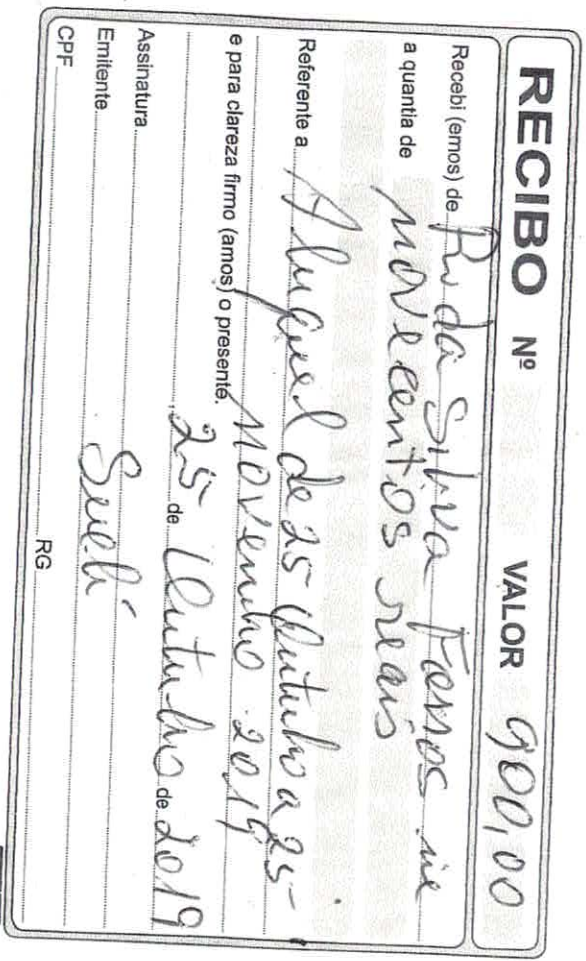 RECIBO Nº VALOR 900,00
Recebi (emos) de R. da Silva Ferros me
a quantia de novecentos reais
Referente a Aluguel de 25 Outubro a 25
novembro 2019
e para clareza firmo (amos) o presente.
25 de Outubro de 2019
Assinatura
Emitente Sueli
CPF RG